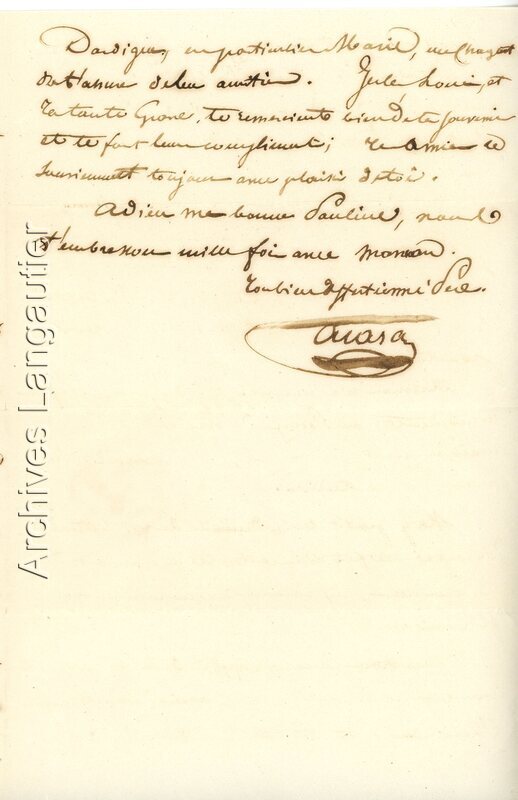 Dardignes, en particulier Marie, me charge
de t'assurer de leur amitié. Jule, Louis, et
ta tante Grone, te remercient bien de ta souvenir
et te font leur compliment; tes amies se
souviennent toujour avec plaisir de toi.
Adieu ma bonne Pauline, nous
t'embrasson mille fois avec maman.
Ton bien affectionné Père.
Archives Langautier